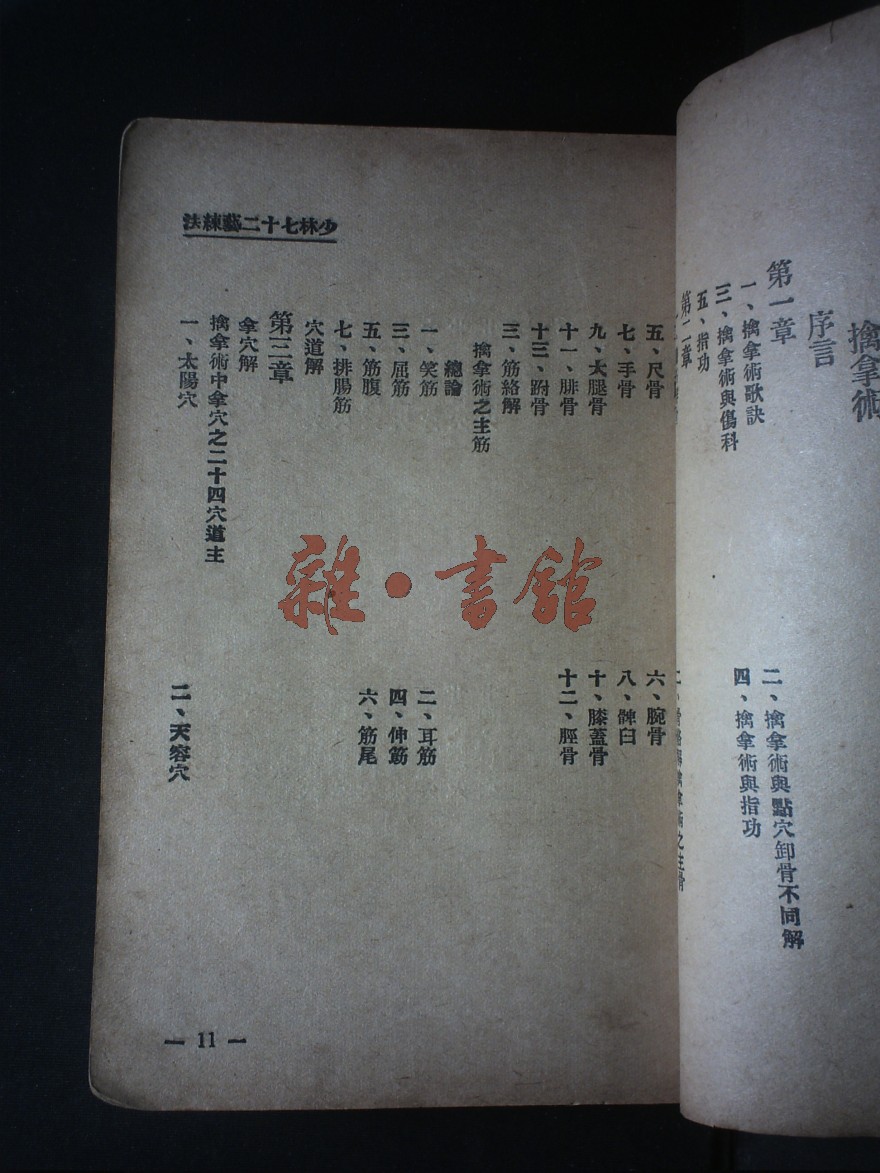 擒拿術
序言
第一章
一、擒拿術歌訣
二、擒拿術與點穴卸骨不同解
三、擒拿術與傷科
四、擒拿術與指功
五、指功
第二章
少林七十二藝練法
五、尺骨
六、腕骨
七、手骨
八、髀臼
九、大腿骨
十、膝蓋骨
十一、腓骨
十二、脛骨
十三、跗骨
三、筋絡解
擒拿術之主筋
總論
一、笑筋
二、耳筋
三、屈筋
四、伸筋
五、筋腹
六、筋尾
七、排腸筋
穴道解
第三章
拿穴解
擒拿術中拿穴之二十四穴道主
一、太陽穴
二、天容穴
— 11 —
雜·書館